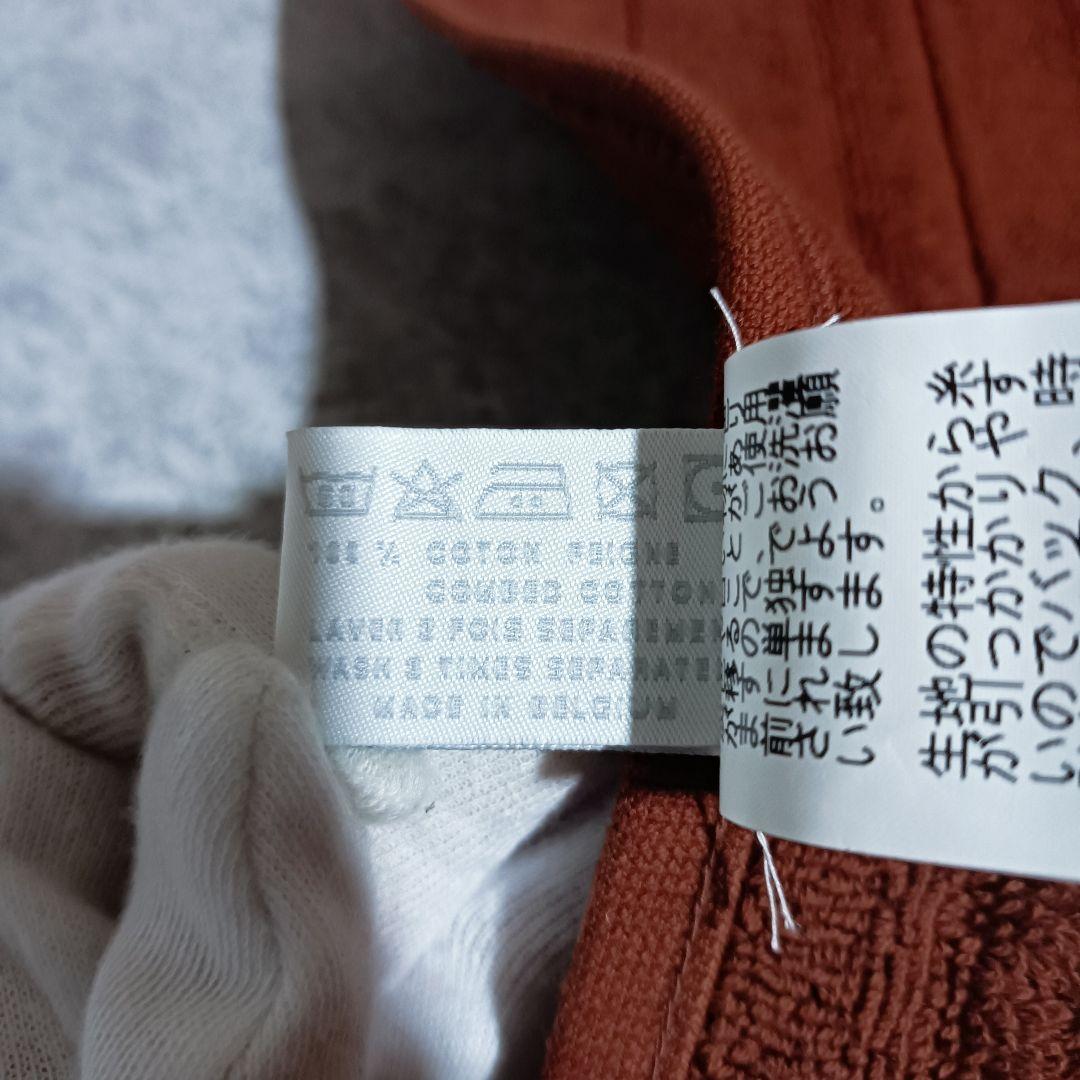 100 % COTON PEIGNE
COMBED COTTON
LAVER 2 FOIS SEPAREMEN
WASH 2 TIMES SEPARATE
MADE IN BELGIUM
前に単独でお洗濯
されますようお願
い致します。
生地の特性から糸
が引っかかりやす
いのでバック、時